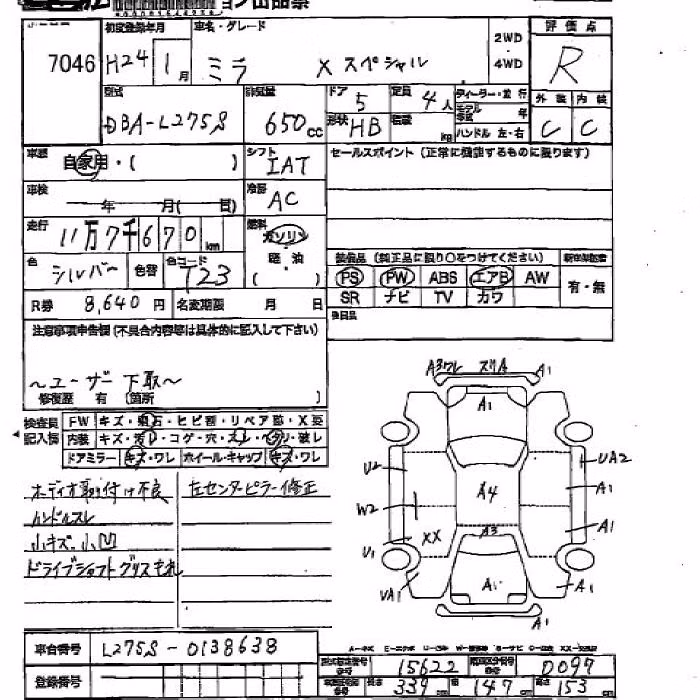 ョン出品票
7046
初度登録年月
H24 1月
車名・グレード
ミラ X スペシャル
2WD
・
4WD
評価点
R
型式
DBA-L275S
排気量
650cc
ドア 5
定員 4人
形状 HB
積載 kg
ディーラー・並行
モデル年式 年
ハンドル 左・右
外装 内装
C C
車歴 自家用・( )
シフト IAT
セールスポイント (正常に機能するものに限ります)
車検 年 月( 日)
冷房 AC
走行 11万7千670km
燃料 ガソリン
軽油
( )
色 シルバー 色替 色コード T23
装備品 (純正品に限り○をつけてください)
PS PW ABS エアB AW
SR ナビ TV カワ
新車保証書
有・無
R券 8,640円 名変期限 月 日
後日品
注意事項申告欄(不具合内容等は具体的に記入して下さい)
~ユーザー下取~
修復歴 有 〔箇所 〕
検査員記入欄
FW キズ・飛石・ヒビ割・リペア跡・X要
内装 キズ・汚レ・コゲ・穴・スレ・ヘタリ・破レ
ドアミラー キズ・ワレ ホイール・キャップ キズ・ワレ
オーディオ取り付け不良
左センターピラー修正
ハンドルスレ
小キズ、小凹
ドライブシャフトグリスもれ
A3ワレ スリA A1
A1
U2 UA2
A4 A1
W2
A3 A1
U1 XX
UA1 A1 A1
A1
車台番号 L275S-0138638
登録番号
型式指定番号 15622 類別区分番号 0099
長さ 339 幅 147 高さ 153 cm